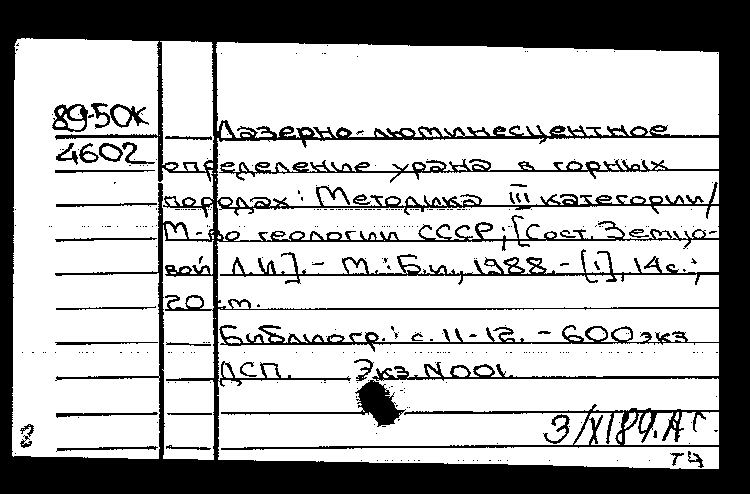 89-50К
Лазерно-люминесцентное
4602
определение урана в горных
породах: Методика III категории/
М-во геологии СССР; [Сост. Земцо-
вой Л.И.]. - М.: Б.и., 1988. - [1], 14с.;
20 см.
Библиогр.: с. 11-12. - 600 экз
ДСП. Экз. N001.
3/XI89. АГ
8